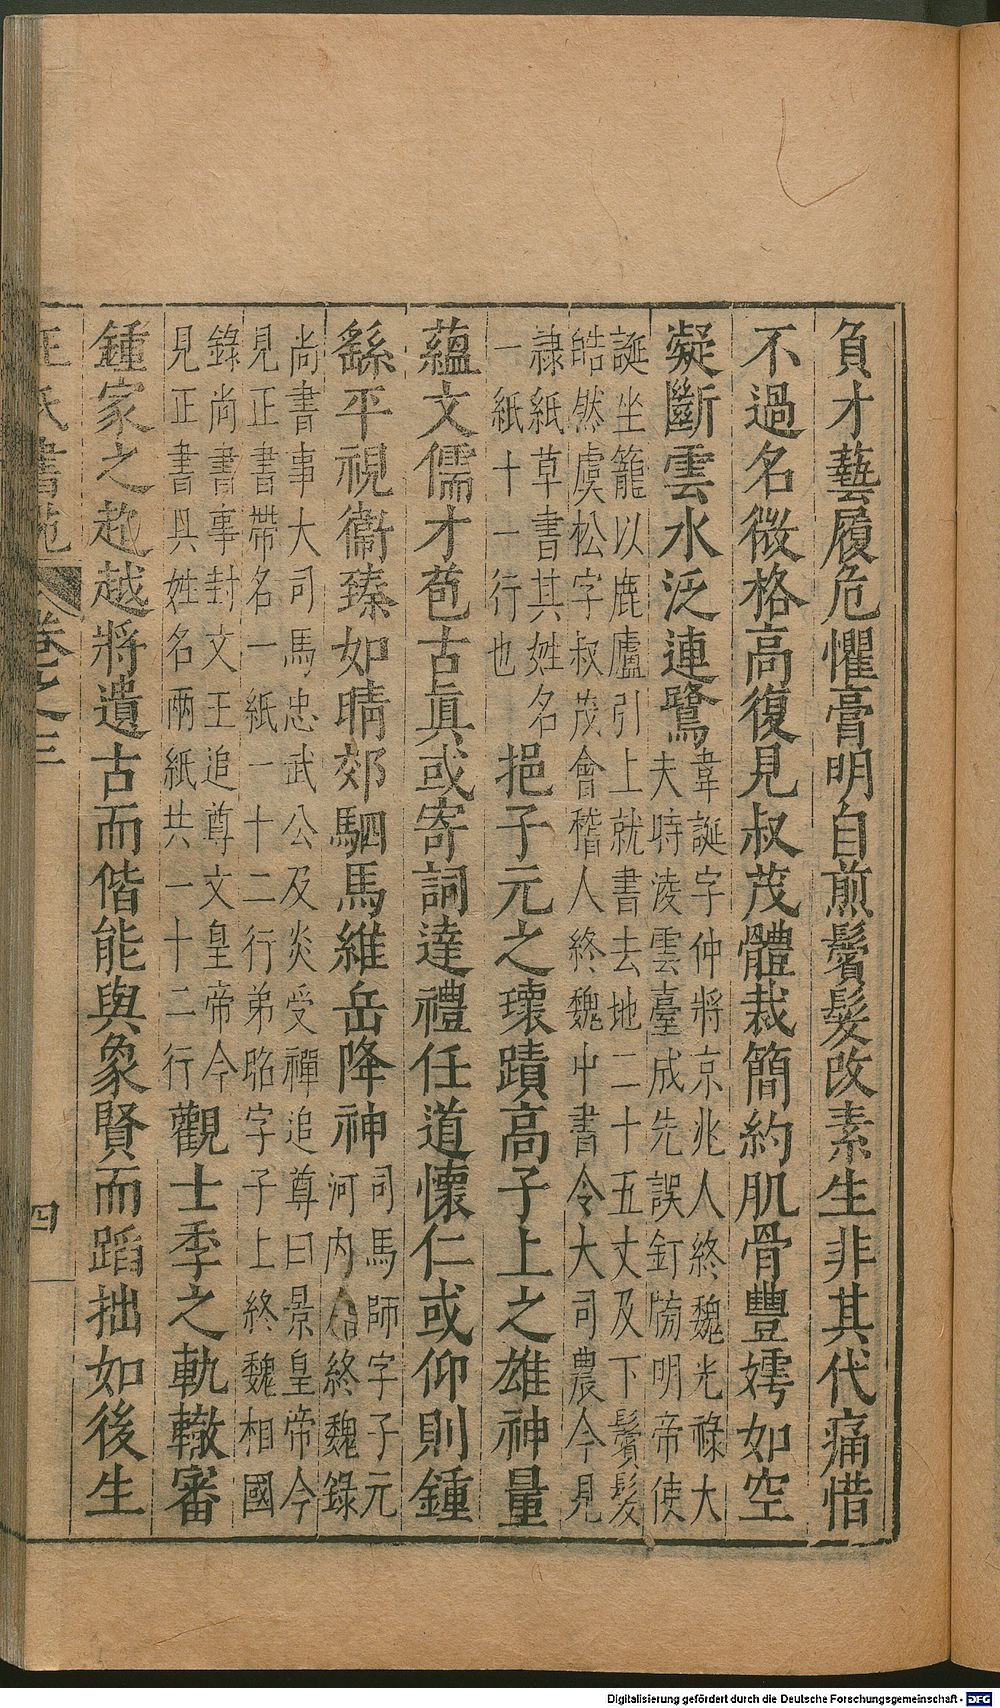 負才藝履危懼膏明自煎鬢髮改素生非其代痛惜
不過名微格高復見叔茂體裁簡約肌骨豐嫮如空
凝斷雲水泛連鷺
韋誕字仲將京兆人終魏光祿大
夫時淩雲臺成先誤釘牓明帝使
誕坐籠以鹿盧引上就書去地二十五丈及下鬢髮
皓然虞松字叔茂會稽人終魏中書令大司農今見
隷紙草書其姓名
一紙十一行也
挹子元之瓌蹟高子上之雄神量
蘊文儒才苞古眞或寄詞達禮任道懷仁或仰則鍾
繇平視衞臻如晴郊駟馬維岳降神
司馬師字子元
河内人終魏錄
尚書事大司馬忠武公及炎受禪追尊曰景皇帝今
見正書帶名一紙一十二行弟昭字子上終魏相國
錄尚書事封文王追尊文皇帝今
見正書具姓名兩紙共一十二行
觀士季之軌轍審
鍾家之越將遺古而偕能與象賢而蹈拙如後生
王氏書苑 卷之三 四
Digitalisierung gefördert durch die Deutsche Forschungsgemeinschaft - DFG